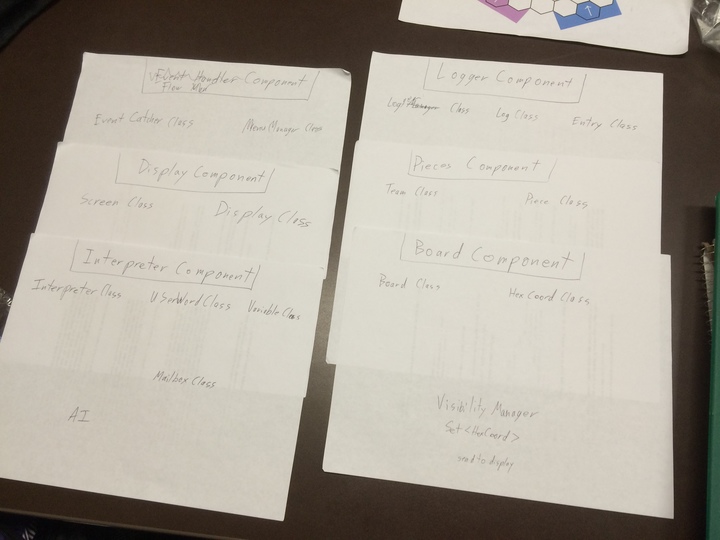 Event Handler Component
Flow
Event Catcher Class
Menu Manager Class
Display Component
Screen Class
Display Class
Interpreter Component
Interpreter Class
UserWord Class
Variable Class
Mailbox Class
AI
Logger Component
Class
Log Class
Entry Class
Pieces Component
Team Class
Piece Class
Board Component
Board Class
HexCoord Class
Visibility Manager
Set <HexCoord>
send to display